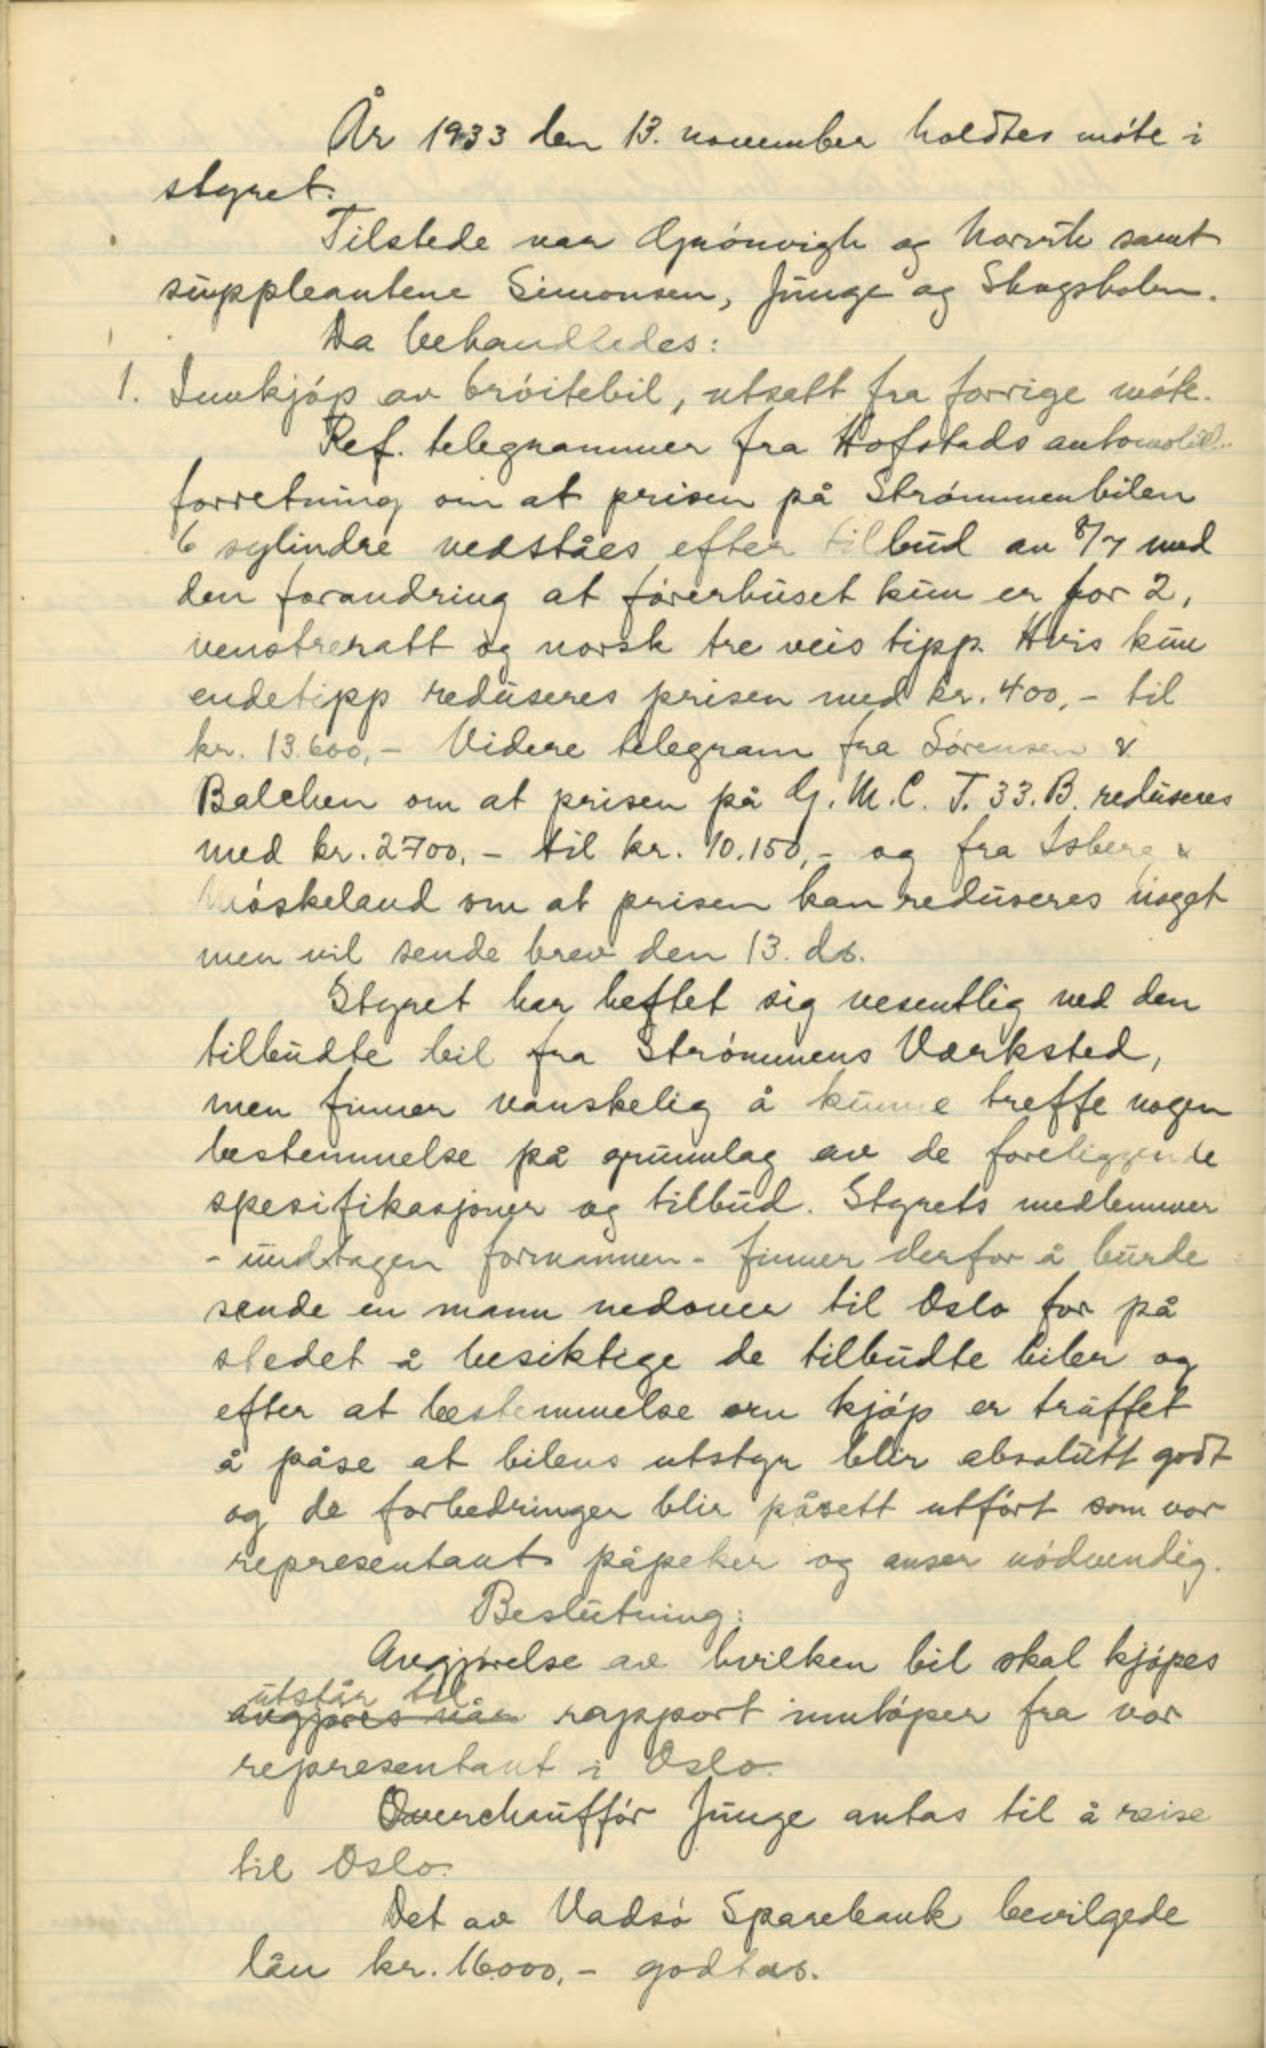 År 1933 den 13. november holdtes møte i
styret.
Tilstede var Grönvigh og Norvik samt
suppleantene Simonsen, Junge og Skogsholm.
Da behandledes:
1. Innkjøp av brøitebil, utsatt fra forrige møte.
Ref. telegrammer fra Hofstads automobil-
forretning om at prisen på Strømmenbilen
6 sylindre vedståes efter tilbud av 8/7 med
den forandring at førerhuset kun er for 2,
venstreratt og norsk tre veis tipp. Hvis kun
endetipp reduseres prisen med kr. 400,- til
kr. 13.600,- Videre telegram fra Sørensen &
Balchen om at prisen på G.M.C. T.33.B. reduseres
med kr. 2700,- til kr. 10.150,- og fra Isberg &
Møskeland om at prisen kan reduseres noget
men vil sende brev den 13. ds.
Styret har heftet sig vesentlig ved den
tilbudte bil fra Strømmens Værksted,
men finner vanskelig å kunne treffe nogen
bestemmelse på grunnlag av de foreliggende
spesifikasjoner og tilbud. Styrets medlemmer
- undtagen formannen - finner derfor å burde
sende en mann nedover til Oslo for på
stedet å besiktige de tilbudte biler og
efter at bestemmelse om kjøp er truffet
å påse at bilens utstyr blir absolutt godt
og de forbedringer blir påsett utført som vor
representant påpeker og anser nødvendig.
Beslutning:
Avgjørelse av hvilken bil skal kjøpes
utstår til
avgjøres når rapport innløper fra vor
representant i Oslo.
Overchauffør Junge antas til å reise
til Oslo.
Det av Vadsø Sparebank bevilgede
lån kr. 16.000,- godtas.